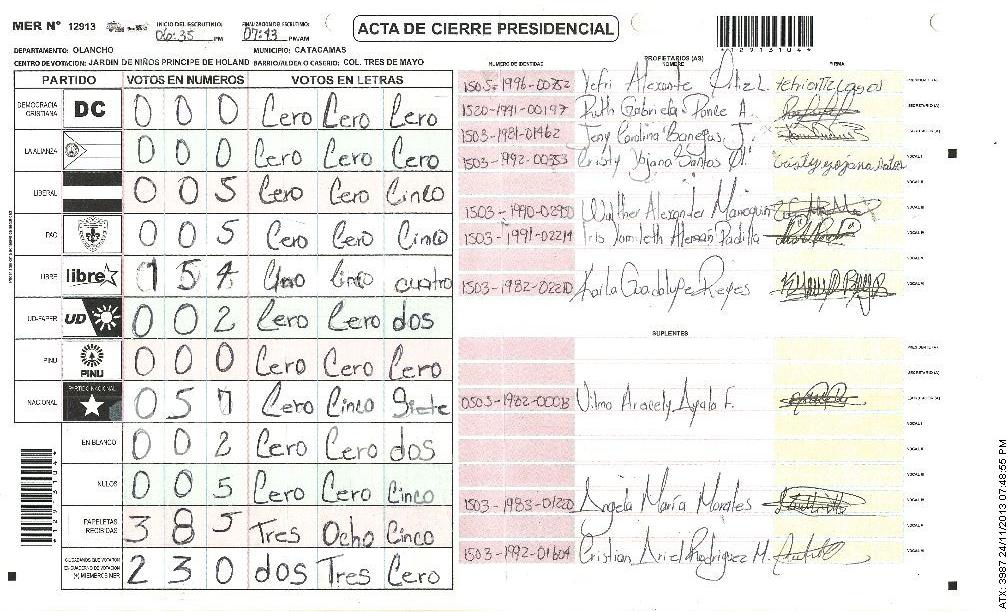 MER N° 12913 INICIO DEL ESCRUTINIO: 06:35 PM FINALIZACION DE ESCRUTINIO: 07:43 PM/AM ACTA DE CIERRE PRESIDENCIAL
DEPARTAMENTO: OLANCHO MUNICIPIO: CATACAMAS
CENTRO DE VOTACION: JARDIN DE NIÑOS PRINCIPE DE HOLAND BARRIO/ALDEA O CASERIO: COL. TRES DE MAYO
PARTIDO VOTOS EN NUMEROS VOTOS EN LETRAS
DEMOCRACIA CRISTIANA DC 0 0 0 Cero Cero Cero
LA ALIANZA 0 0 0 Cero Cero Cero
LIBERAL 0 0 5 Cero Cero Cinco
PAC 0 0 5 Cero Cero Cinco
LIBRE libre 1 5 4 cinco cuatro
UD-FAPER UD 0 0 2 Cero Cero dos
PINU PINU 0 0 0 Cero Cero Cero
NACIONAL PARTIDO NACIONAL 0 5 7 Cero Cinco Siete
EN BLANCO 0 0 2 Cero Cero dos
NULOS 0 0 5 Cero Cero Cinco
PAPELETAS RECIBIDAS 3 8 5 Tres Ocho Cinco
CIUDADANOS QUE VOTARON EN CUADERNO DE VOTACION (+) MIEMBROS MER 2 3 0 dos Tres Cero
PROPIETARIOS (AS)
NUMERO DE IDENTIDAD NOMBRE FIRMA
1505-1996-00752 Yefri Alexante Ortiz L. PRESIDENTE (A)
1520-1991-00197 Ruth Gabriela Ponce A. SECRETARIO (A)
1503-1981-01462 Jeny Carolina Banegas. J.
1503-1992-00353 Cristy Yojana Santos VOCAL I
VOCAL II
Walther Alexander VOCAL III
1503-1991-02214 Iris Yamileth Alemán Padilla VOCAL IV
VOCAL V
1503-1982-02210 Karla Guadalupe Reyes VOCAL VI
SUPLENTES
PRESIDENTE (A)
SECRETARIO (A)
Vilma Aracely Ayala F.
VOCAL I
VOCAL II
VOCAL III
1503-1983-01220 Angela María Morales VOCAL IV
VOCAL V
1503-1992-01604 Cristian Ariel Rodriguez M. VOCAL VI
ATX: 3987 24/11/2013 07:48:55 PM